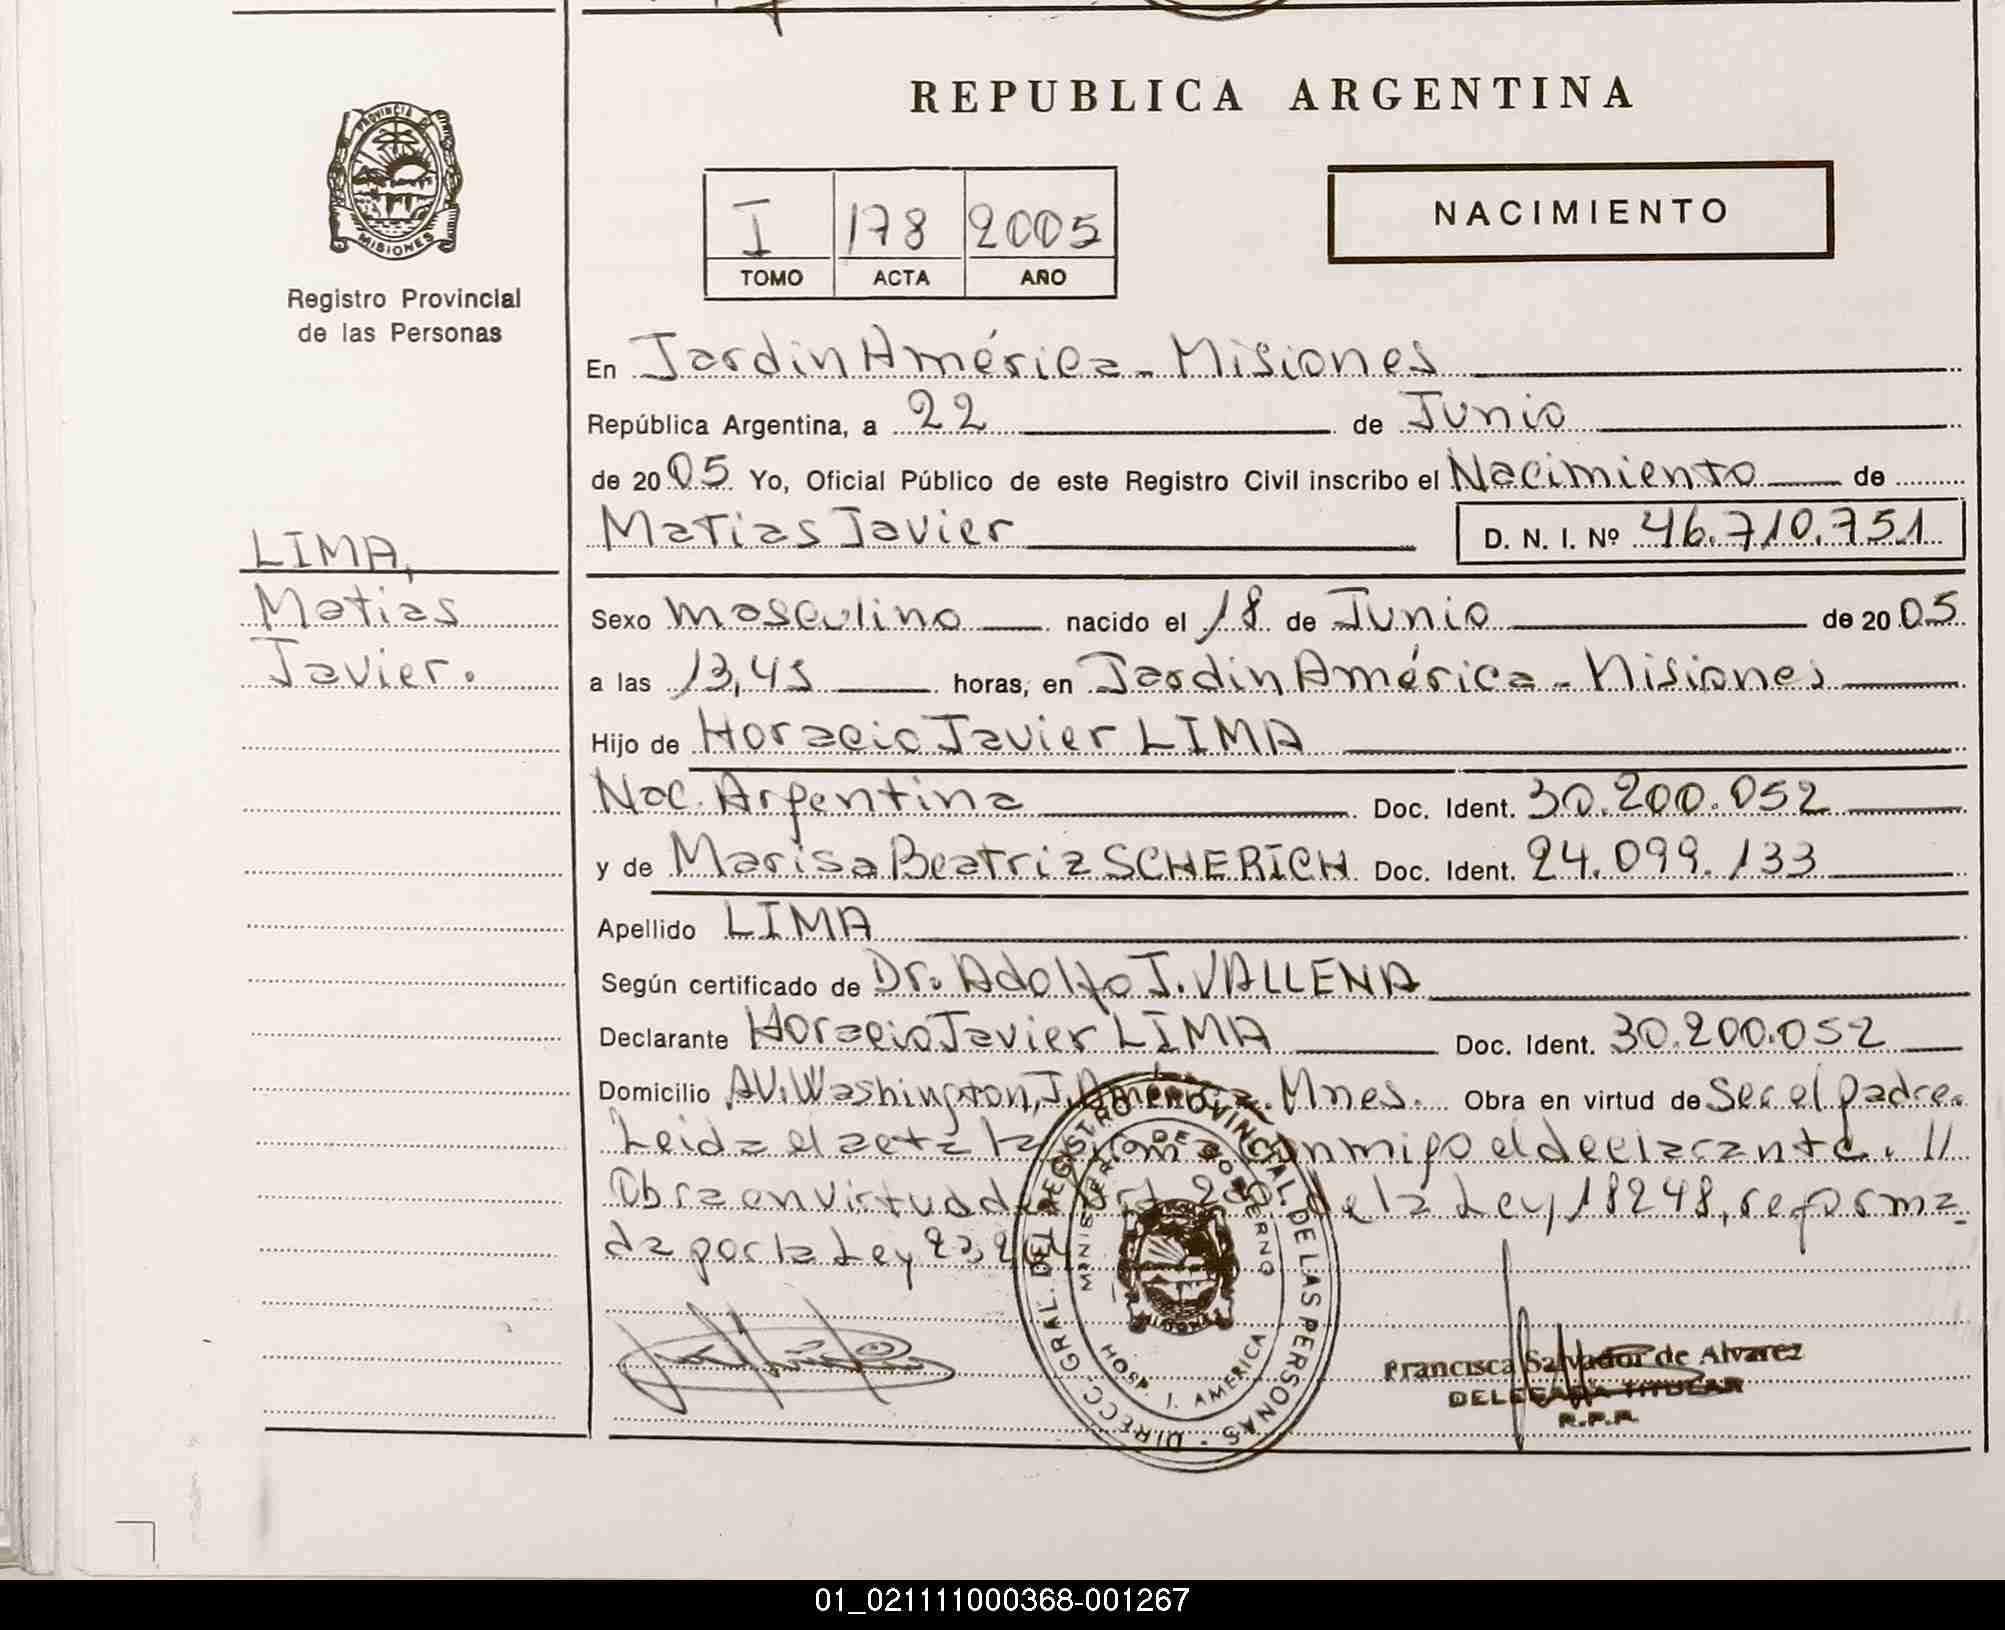 REPUBLICA ARGENTINA
PROVINCIA DE
MISIONES
Registro Provincial
de las Personas
I 178 2005
TOMO ACTA AÑO
NACIMIENTO
En Jardin América - Misiones
República Argentina, a 22 de Junio
de 2005 Yo, Oficial Público de este Registro Civil inscribo el Nacimiento de
Matias Javier D. N. I. Nº 46.710.751
LIMA,
Matias
Javier.
Sexo masculino nacido el 18 de Junio de 2005
a las 13,45 horas, en Jardin América - Misiones
Hijo de Horacio Javier LIMA
Nac. Argentina Doc. Ident. 30.200.052
y de Marisa Beatriz SCHERICH Doc. Ident. 24.099.133
Apellido LIMA
Según certificado de Dr. Adolfo J. VALLENA
Declarante Horacio Javier LIMA Doc. Ident. 30.200.052
Domicilio AV. Washington, J. América. Mnes. Obra en virtud de Ser el padre.
Leida el acta la firma conmigo el declarante. //
Obra en virtud del Art. de la Ley 18248, reforma-
da por la Ley
DIRECC. GRAL. DEL REGISTRO PROVINCIAL DE LAS PERSONAS
MINISTERIO DE GOBIERNO
HOSP. J. AMERICA
Francisca Salvador de Alvarez
DELEGADA TITULAR
R.P.P.
01_021111000368-001267